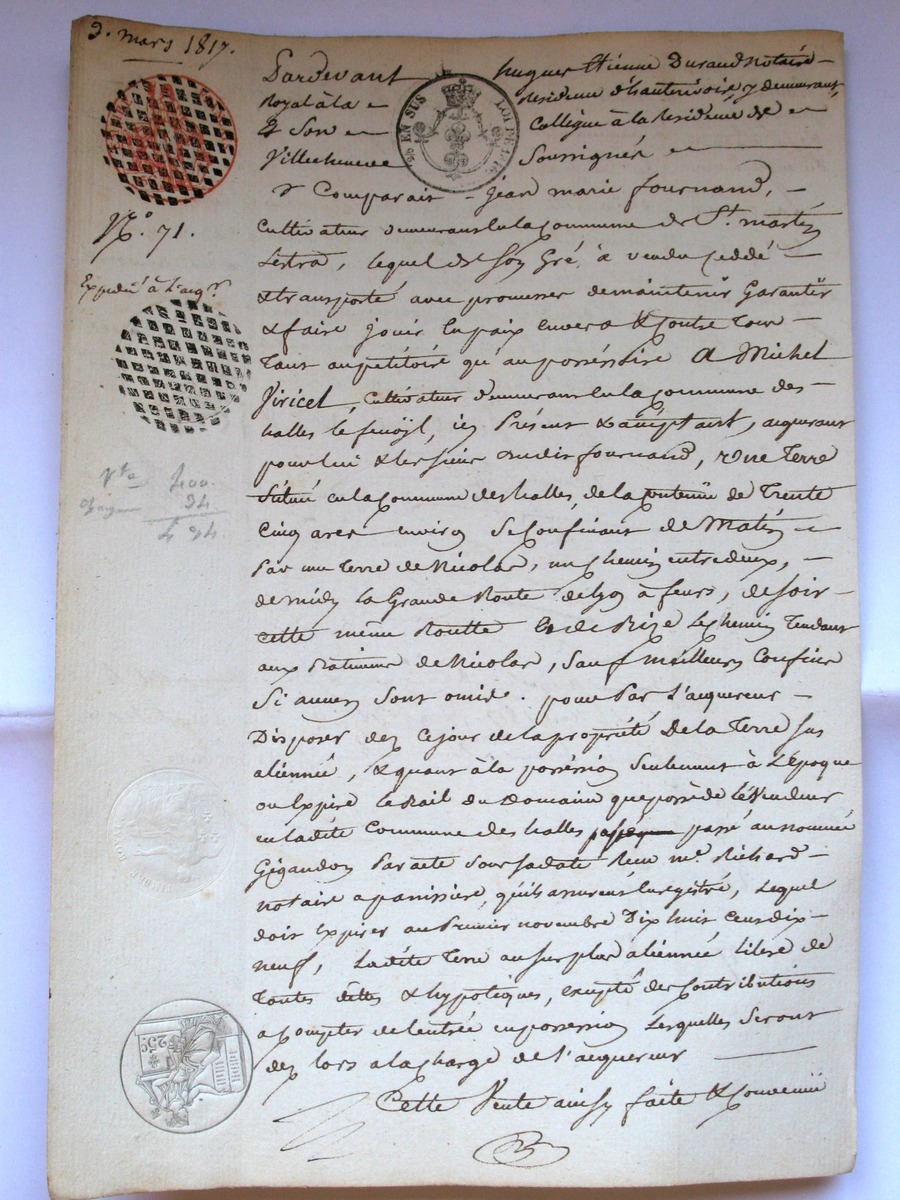 3. mars 1817.
Pardevant hugues Etienne Durand notaire
Royal à la residence d'hauterivoire, y demeurant
& Son Collegue à la Residence de
Villecheneve Soussignés
Comparait Jean marie fournand,
Cultivateur demeurant en la Commune de St. martin
Lestra, lequel de Son Gré à vendu Ceddé
& transporté avec promesse de maintenir Garantir
& faire jouir En paix envers & Contre Tous
Tant au petitoire qu'au posséssoire A Michel
Viricel, Cultivateur demeurant en la Commune des
halles le fenoÿl, icy Présent & acceptant, acquerant
pour lui & les siens dudit fournand, Une Terre
Située en la Commune des halles, de la Contenue de Trente
Cinq ares environ Se Confinant de Matin
Par une Terre de Nicolas, un Chemin entredeux,
de midy la Grande Route de Lyon à feurs, de Soir
cette même Routte & de Bize Le Chemin Tendant
aux Batiments de Nicolas, Sauf meilleurs Confins
Si aucuns Sont omis. pour Par L'acquereur
Disposer dez Ce jour de la propriété De la Terre Sus
aliennée, & quant à la posséssion Seulement à L'Époque
ou Expire Le Bail du Domaine que possède le Vendeur
en ladite Commune des halles passé au nommé
Gigandon Par acte Sous Sa date Recu me. Richard
notaire a panissière, qu'ils assurent Enregistré, Lequel
doit Expirer au Premier novembre Dix huit Cent dix
neuf, Ladite Terre au Surplus aliennée libre de
Toutes dettes & hypotéques, excepté des Contributions
a Compter de l'entrée en possession Lesquelles Seront
dez lors a la Charge de l'acquereur
Cette Vente ainsy faite & Convenue
No. 71.
Expedié à L'acqr.
400
34
434
EN SUS
LOI DE 1816
25c